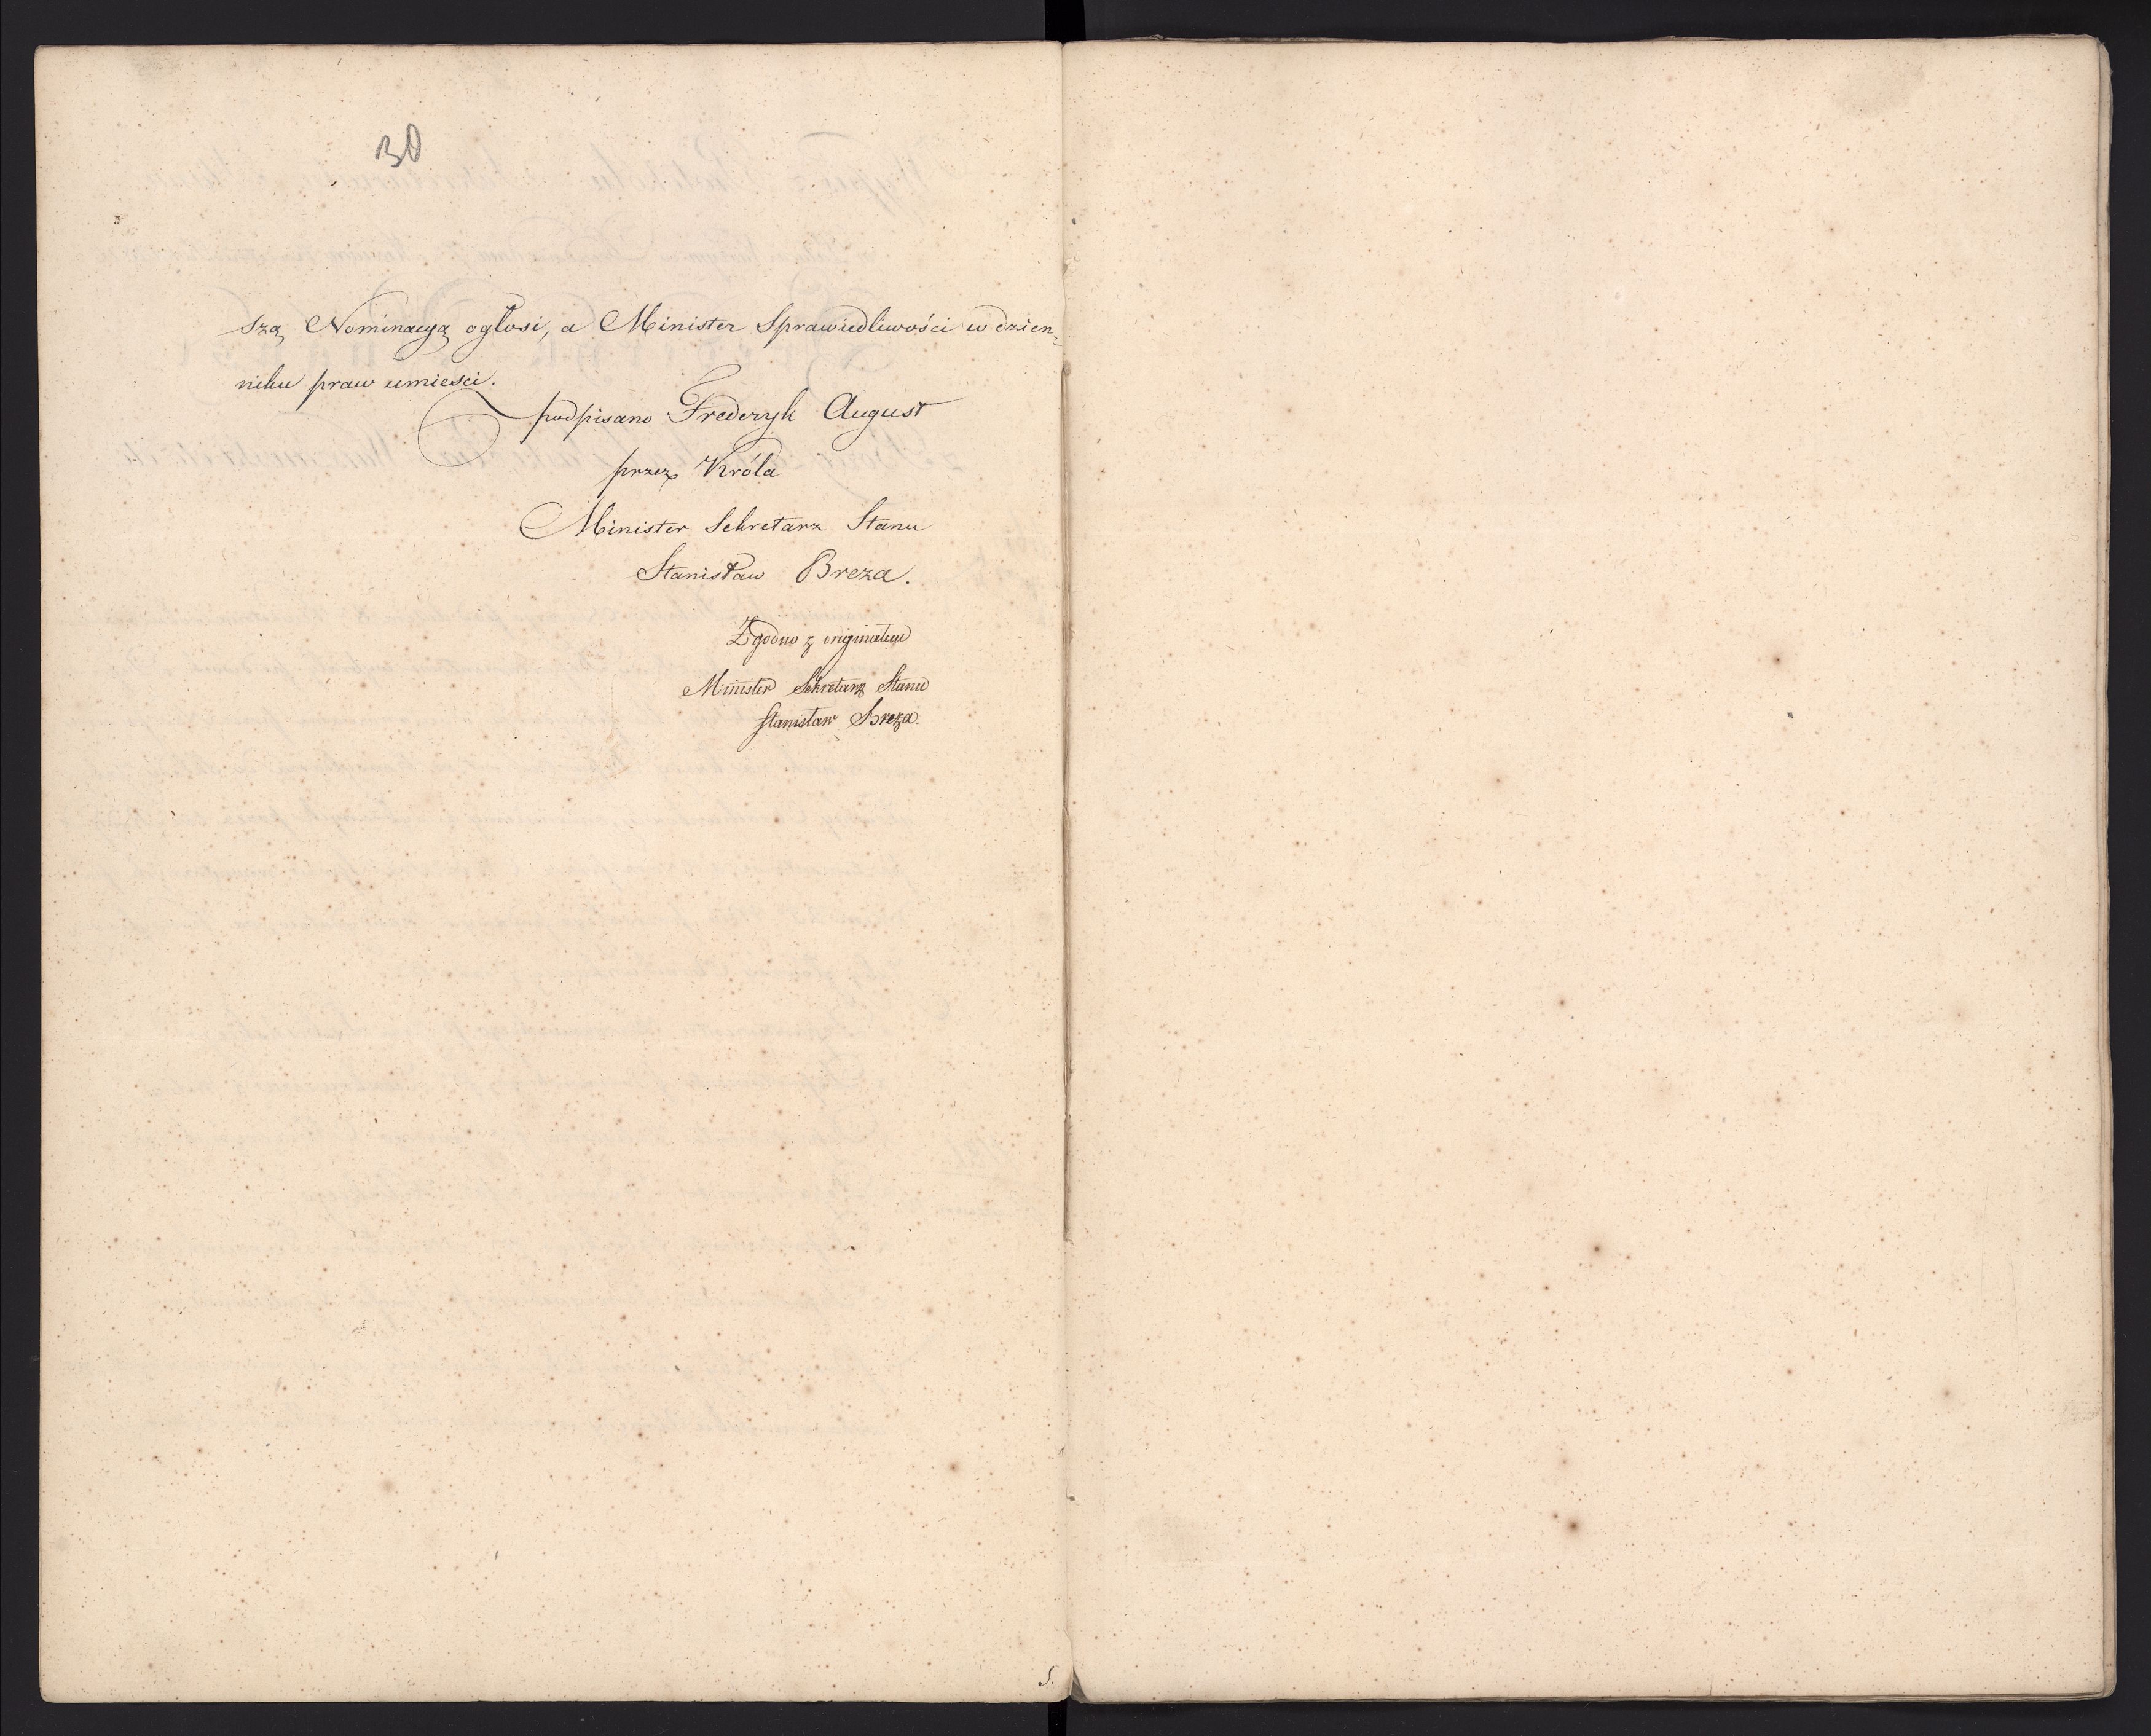 30
szą Nominacyą ogłosi, a Minister Sprawiedliwości w dzien=
niku praw umieści.
podpisano Frederyk August
przez Króla
Minister Sekretarz Stanu
Stanisław Breza.
Zgodno z originałem
Minister Sekretarz Stanu
Stanisław Breza.